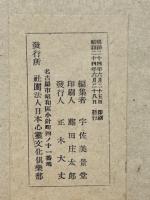 昭和二十四年六月二十五日 印刷
昭和二十四年六月二十八日 發行
編集者 宇佐美景堂
印刷人 鷹田庄太郎
發行人 正木大丈
名古屋市昭和區小針町四ノ十一番地
發行所 社團法人日本心靈文化倶樂部